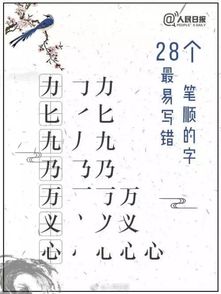 @人民日报
28个
最易写错
笔顺的字
力 力
匕 丿 匕
九 丿 九
乃 乃
万 一 万
义 丶 义
心 丶 心